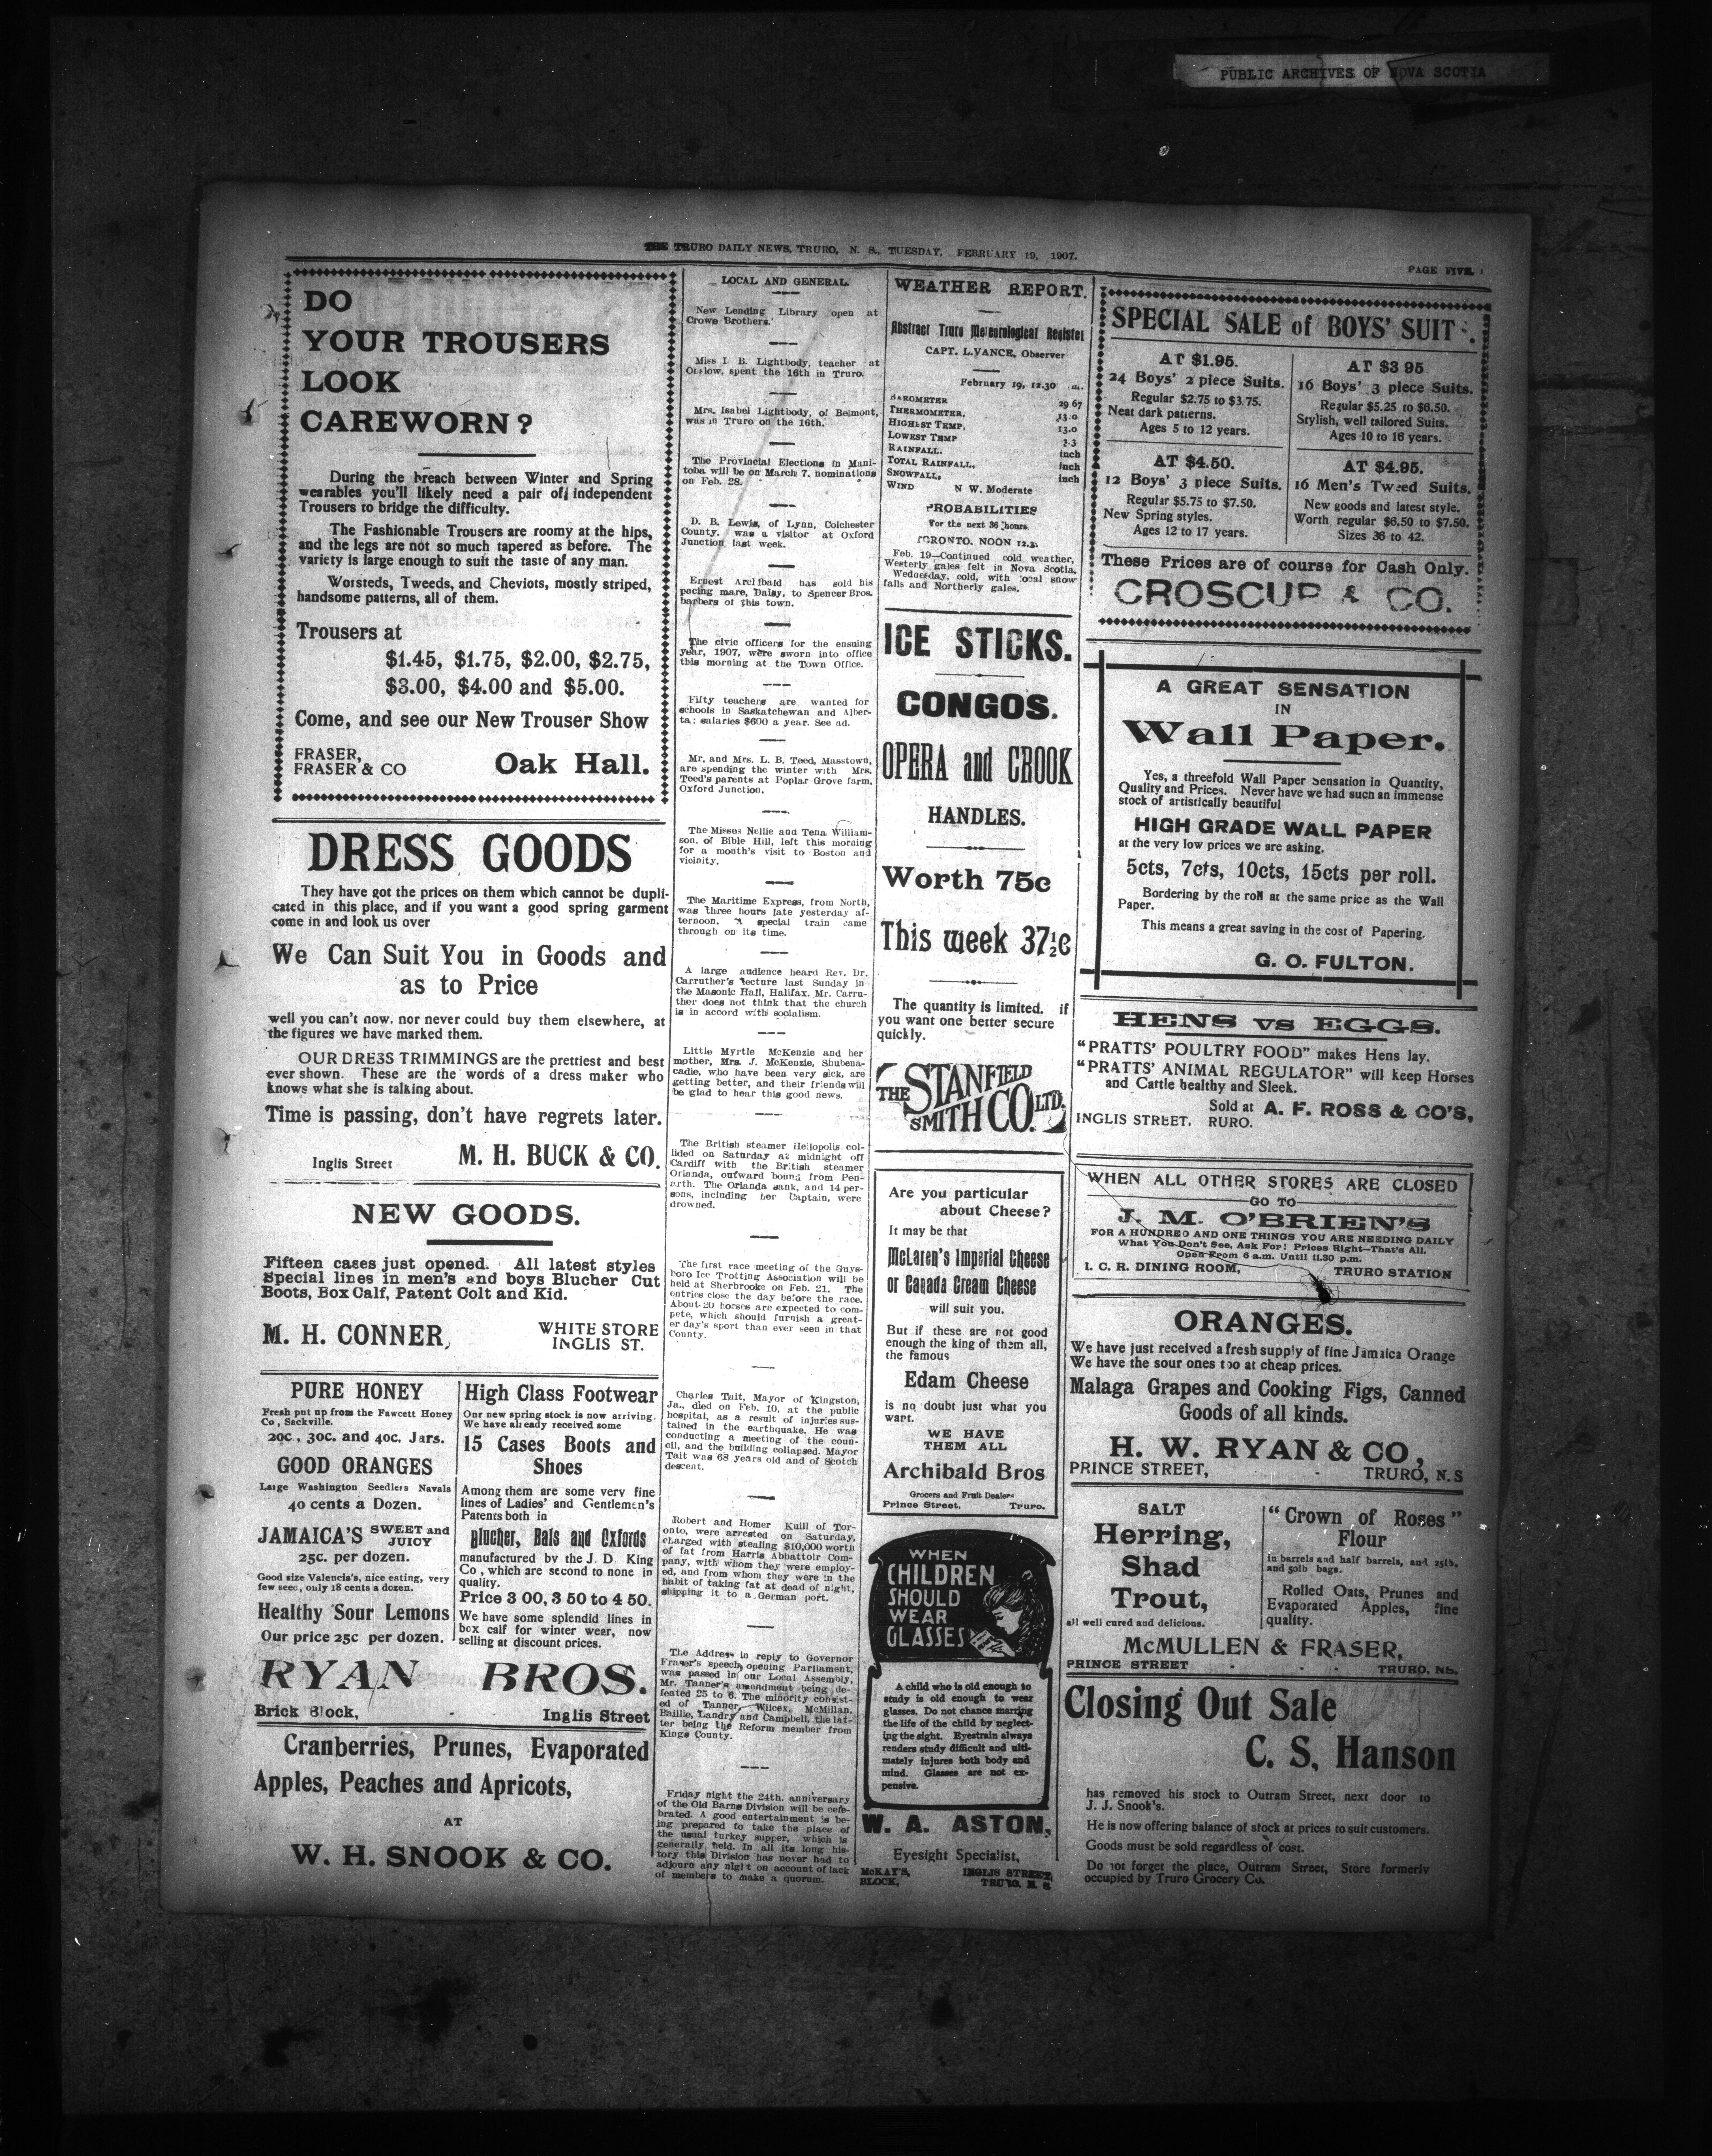 PUBLIC ARCHIVES OF NOVA SCOTIA
THE TRURO DAILY NEWS, TRURO, N. S., TUESDAY, FEBRUARY 19, 1907.
PAGE FIVE.
DO
YOUR TROUSERS
LOOK
CAREWORN?
During the breach between Winter and Spring
wearables you'll likely need a pair of independent
Trousers to bridge the difficulty.
The Fashionable Trousers are roomy at the hips,
and the legs are not so much tapered as before. The
variety is large enough to suit the taste of any man.
Worsteds, Tweeds, and Cheviots, mostly striped,
handsome patterns, all of them.
Trousers at
$1.45, $1.75, $2.00, $2.75,
$3.00, $4.00 and $5.00.
Come, and see our New Trouser Show
FRASER,
FRASER & CO
Oak Hall.
DRESS GOODS
They have got the prices on them which cannot be dupli-
cated in this place, and if you want a good spring garment
come in and look us over
We Can Suit You in Goods and
as to Price
well you can't now. nor never could buy them elsewhere, at
the figures we have marked them.
OUR DRESS TRIMMINGS are the prettiest and best
ever shown. These are the words of a dress maker who
knows what she is talking about.
Time is passing, don't have regrets later.
Inglis Street
M. H. BUCK & CO.
NEW GOODS.
Fifteen cases just opened. All latest styles
Special lines in men's and boys Blucher Cut
Boots, Box Calf, Patent Colt and Kid.
M. H. CONNER,
WHITE STORE
INGLIS ST.
PURE HONEY
Fresh put up from the Fawcett Honey
Co, Sackville.
20c, 30c. and 40c. Jars.
GOOD ORANGES
Large Washington Seedlers Navals
40 cents a Dozen.
JAMAICA'S SWEET and
JUICY
25c. per dozen.
Good size Valencia's, nice eating, very
few seed, only 18 cents a dozen.
Healthy Sour Lemons
Our price 25c per dozen.
High Class Footwear
Our new spring stock is now arriving.
We have already received some
15 Cases Boots and
Shoes
Among them are some very fine
lines of Ladies' and Gentlemen's
Patents both in
Blucher, Bals and Oxfords
manufactured by the J. D. King
Co, which are second to none in
quality.
Price 3 00, 3 50 to 4 50.
We have some splendid lines in
box calf for winter wear, now
selling at discount prices.
RYAN BROS.
Brick Block, - Inglis Street
Cranberries, Prunes, Evaporated
Apples, Peaches and Apricots,
AT
W. H. SNOOK & CO.
LOCAL AND GENERAL
New Lending Library open at
Crowe Brothers.
Miss I. B. Lightbody, teacher at
Onslow, spent the 16th in Truro.
Mrs. Isabel Lightbody, of Belmont,
was in Truro on the 16th.
The Provincial Elections in Mani-
toba will be on March 7. nominations
on Feb. 28.
D. B. Lewis, of Lynn, Colchester
County, was a visitor at Oxford
Junction last week.
Ernest Archibald has sold his
pacing mare, Daisy, to Spencer Bros.
barbers of this town.
The civic officers for the ensuing
year, 1907, were sworn into office
this morning at the Town Office.
Fifty teachers are wanted for
schools in Saskatchewan and Alber-
ta; salaries $600 a year. See ad.
Mr. and Mrs. L. B. Teed, Masstown,
are spending the winter with Mrs.
Teed's parents at Poplar Grove farm,
Oxford Junction.
The Misses Nellie and Tena William-
son, of Bible Hill, left this morning
for a month's visit to Boston and
vicinity.
The Maritime Express, from North,
was three hours late yesterday af-
ternoon. A special train came
through on its time.
A large audience heard Rev. Dr.
Carruther's lecture last Sunday in
the Masonic Hall, Halifax. Mr. Carru-
ther does not think that the church
is in accord with socialism.
Little Myrtle McKenzie and her
mother, Mrs. J. McKenzie, Shubena-
cadie, who have been very sick, are
getting better, and their friends will
be glad to hear this good news.
The British steamer Heliopolis col-
lided on Saturday at midnight off
Cardiff with the British steamer
Orianda, outward bound from Pen-
arth. The Orianda sank, and 14 per-
sons, including her Captain, were
drowned.
The first race meeting of the Guys-
boro Ice Trotting Association will be
held at Sherbrooke on Feb. 21. The
entries close the day before the race.
About 20 horses are expected to com-
pete, which should furnish a great-
er day's sport than ever seen in that
County.
Charles Tait, Mayor of Kingston,
Ja., died on Feb. 10, at the public
hospital, as a result of injuries sus-
tained in the earthquake. He was
conducting a meeting of the coun-
cil, and the building collapsed. Mayor
Tait was 68 years old and of Scotch
descent.
Robert and Homer Kuill of Tor-
onto, were arrested on Saturday,
charged with stealing $10,000 worth
of fat from Harris Abbattoir Com-
pany, with whom they were employ-
ed, and from whom they were in the
habit of taking fat at dead of night,
shipping it to a German port.
The Address in reply to Governor
Fraser's speech, opening Parliament,
was passed in our Local Assembly,
Mr. Tanner's amendment being de-
feated 25 to 6. The minority consist-
ed of Tanner, Wilcox, McMillan,
Baillie, Landry and Campbell, the lat-
ter being the Reform member from
Kings County.
Friday night the 24th. anniversary
of the Old Barns Division will be cele-
brated. A good entertainment is be-
ing prepared to take the place of
the usual turkey supper, which is
generally held. In all its long his-
tory this Division has never had to
adjourn any night on account of lack
of members to make a quorum.
WEATHER REPORT.
Abstract Truro Meteorological Register
CAPT. L. VANCE, Observer
February 19, 12.30
BAROMETER 29 67
THERMOMETER, 13.0
HIGHEST TEMP, 13.0
LOWEST TEMP
RAINFALL. inch
TOTAL RAINFALL, inch
SNOWFALL, inch
WIND N W. Moderate
PROBABILITIES
For the next 36 hours
TORONTO. NOON
Feb. 19—Continued cold weather,
Westerly gales felt in Nova Scotia.
Wednesday, cold, with local snow
falls and Northerly gales.
ICE STICKS.
CONGOS.
OPERA and CROOK
HANDLES.
Worth 75c
This week 37½c
The quantity is limited. if
you want one better secure
quickly.
THE STANFIELD
SMITH CO. LTD.
Are you particular
about Cheese?
It may be that
McLaren's Imperial Cheese
or Canada Cream Cheese
will suit you.
But if these are not good
enough the king of them all,
the famous
Edam Cheese
is no doubt just what you
want.
WE HAVE
THEM ALL
Archibald Bros
Grocers and Fruit Dealers
Prince Street, Truro.
WHEN
CHILDREN
SHOULD
WEAR
GLASSES
A child who is old enough to
study is old enough to wear
glasses. Do not chance marring
the life of the child by neglect-
ing the sight. Eyestrain always
renders study difficult and ulti-
mately injures both body and
mind. Glasses are not ex-
pensive.
W. A. ASTON,
Eyesight Specialist,
McKAY'S BLOCK,
INGLIS STREET,
TRURO, N. S.
SPECIAL SALE of BOYS' SUIT
AT $1.95.
24 Boys' 2 piece Suits.
Regular $2.75 to $3.75.
Neat dark patterns.
Ages 5 to 12 years.
AT $3 95
16 Boys' 3 piece Suits.
Regular $5.25 to $6.50.
Stylish, well tailored Suits.
Ages 10 to 16 years.
AT $4.50.
12 Boys' 3 piece Suits.
Regular $5.75 to $7.50.
New Spring styles.
Ages 12 to 17 years.
AT $4.95.
16 Men's Tweed Suits.
New goods and latest style.
Worth regular $6.50 to $7.50.
Sizes 36 to 42.
These Prices are of course for Cash Only.
CROSCUP & CO.
A GREAT SENSATION
IN
Wall Paper.
Yes, a threefold Wall Paper Sensation in Quantity,
Quality and Prices. Never have we had such an immense
stock of artistically beautiful
HIGH GRADE WALL PAPER
at the very low prices we are asking.
5cts, 7cts, 10cts, 15cts per roll.
Bordering by the roll at the same price as the Wall
Paper.
This means a great saving in the cost of Papering.
G. O. FULTON.
HENS vs EGGS.
"PRATTS' POULTRY FOOD" makes Hens lay.
"PRATTS' ANIMAL REGULATOR" will keep Horses
and Cattle healthy and Sleek.
Sold at A. F. ROSS & CO'S,
INGLIS STREET, RURO.
WHEN ALL OTHER STORES ARE CLOSED
GO TO
J. M. O'BRIEN'S
FOR A HUNDRED AND ONE THINGS YOU ARE NEEDING DAILY
What You Don't See, Ask For! Prices Right—That's All.
Open From 6 a.m. Until 11.30 p.m.
I. C. R. DINING ROOM, TRURO STATION
ORANGES.
We have just received a fresh supply of fine Jamaica Orange
We have the sour ones too at cheap prices.
Malaga Grapes and Cooking Figs, Canned
Goods of all kinds.
H. W. RYAN & CO,
PRINCE STREET, - TRURO, N.S
SALT
Herring,
Shad
Trout,
all well cured and delicious.
"Crown of Roses"
Flour
in barrels and half barrels, and 25lb.
and 50lb bags.
Rolled Oats, Prunes and
Evaporated Apples, fine
quality.
McMULLEN & FRASER,
PRINCE STREET - - - TRURO, NS.
Closing Out Sale
C. S. Hanson
has removed his stock to Outram Street, next door to
J. J. Snook's.
He is now offering balance of stock at prices to suit customers.
Goods must be sold regardless of cost.
Do not forget the place, Outram Street, Store formerly
occupied by Truro Grocery Co.